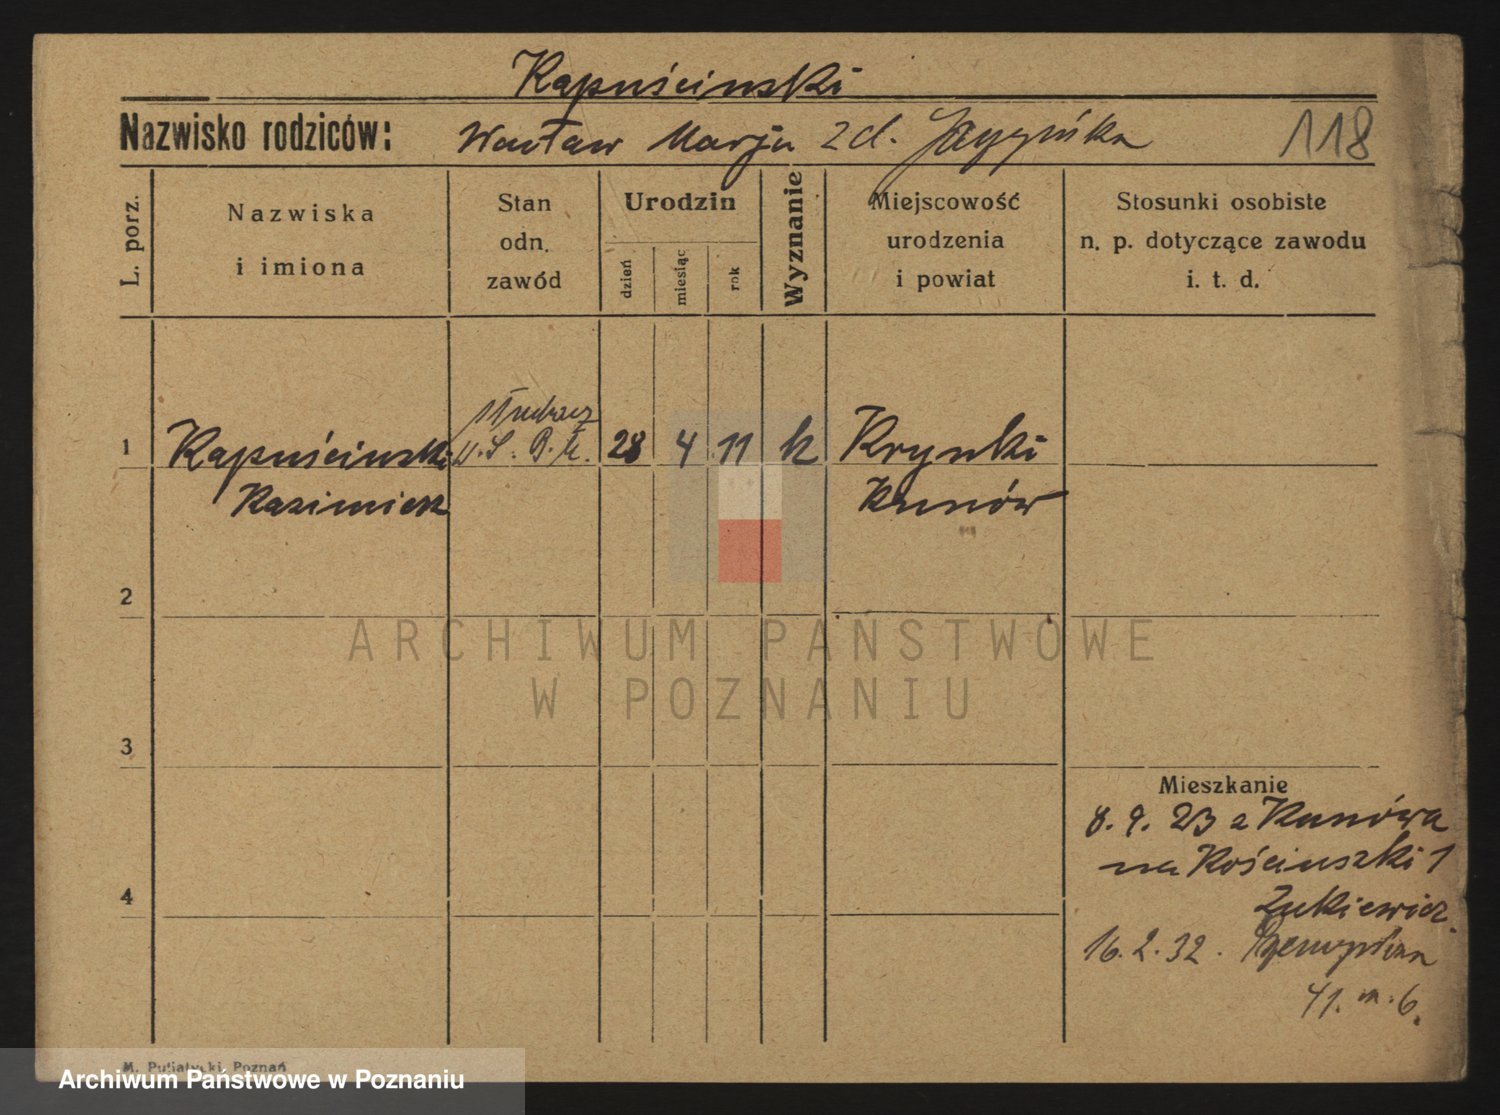 Kapuściński
Nazwisko rodziców: Wacław Marja zd. 118
L. porz.
Nazwiska
i imiona
Stan
odn.
zawód
Urodzin
dzień
miesiąc
rok
Wyznanie
Miejscowość
urodzenia
i powiat
Stosunki osobiste
n. p. dotyczące zawodu
i. t. d.
1 Kapuściński 28 4 11 k Krynki
Kazimierz Kunów
2
3
4
Mieszkanie
8. 9. 23 z Kunówa
na Kościuszki 1
Żukiewicz
16. 2. 32.
41. m. 6.
M. Putiatycki, Poznań
ARCHIWUM PAŃSTWOWE
W POZNANIU
Archiwum Państwowe w Poznaniu